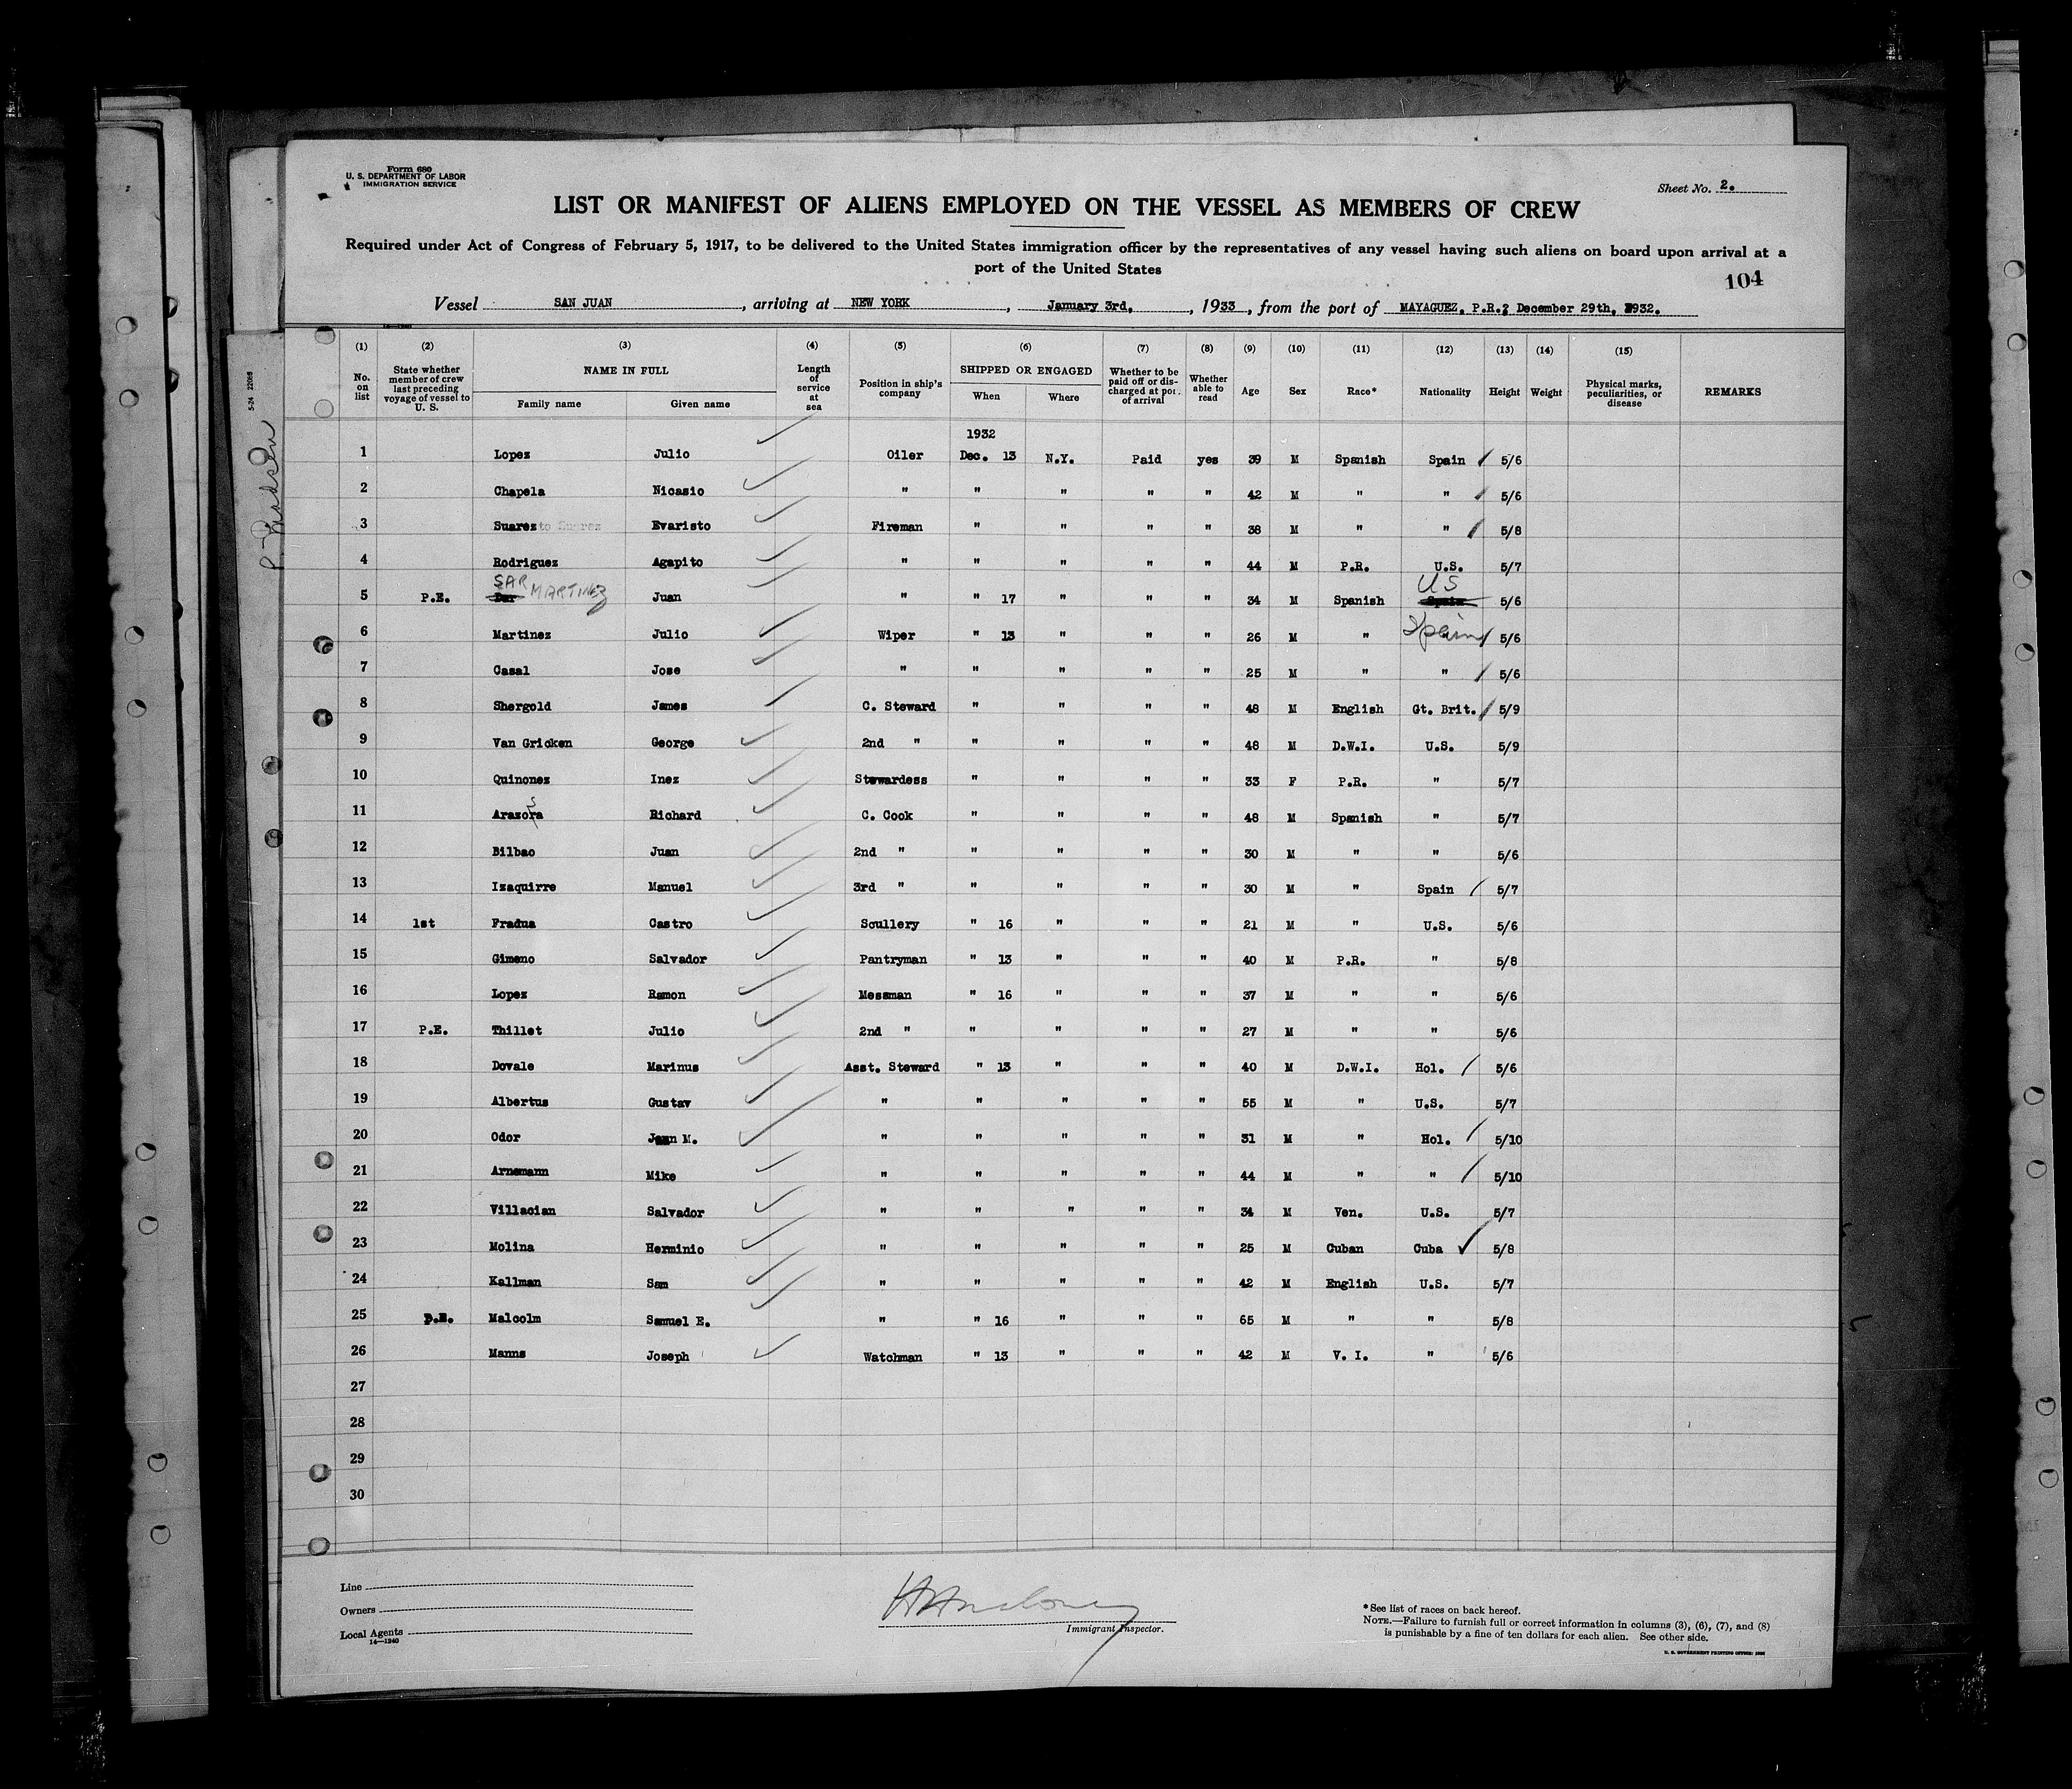 Form 680
U. S. DEPARTMENT OF LABOR
IMMIGRATION SERVICE
Sheet No. 2.
LIST OR MANIFEST OF ALIENS EMPLOYED ON THE VESSEL AS MEMBERS OF CREW
Required under Act of Congress of February 5, 1917, to be delivered to the United States immigration officer by the representatives of any vessel having such aliens on board upon arrival at a
port of the United States
104
Vessel SAN JUAN, arriving at NEW YORK, January 3rd, 1933, from the port of MAYAGUEZ, P.R.; December 29th, 1932.
(1) (2) (3) (4) (5) (6) (7) (8) (9) (10) (11) (12) (13) (14) (15)
No. on list State whether member of crew last preceding voyage of vessel to U. S. NAME IN FULL Family name Given name Length of service at sea Position in ship's company SHIPPED OR ENGAGED When Where Whether to be paid off or discharged at port of arrival Whether able to read Age Sex Race* Nationality Height Weight Physical marks, peculiarities, or disease REMARKS
1932
1 Lopez Julio Oiler Dec. 13 N.Y. Paid yes 39 M Spanish Spain 5/6
2 Chapela Nicasio " " " " " 42 M " " 5/6
3 Suarez Evaristo Fireman " " " " 38 M " " 5/8
4 Rodriguez Agapito " " " " " 44 M P.R. U.S. 5/7
SAR MARTINEZ US
5 P.E. Juan " " 17 " " " 34 M Spanish Spain 5/6
6 Martinez Julio Wiper " 13 " " " 26 M " Spain 5/6
7 Casal Jose " " " " " 25 M " " 5/6
8 Shergold James C. Steward " " " " 48 M English Gt. Brit. 5/9
9 Van Gricken George 2nd " " " " " 48 M D.W.I. U.S. 5/9
10 Quinonez Inez Stewardess " " " " 33 F P.R. " 5/7
11 Arazora s Richard C. Cook " " " " 48 M Spanish " 5/7
12 Bilbao Juan 2nd " " " " " 30 M " " 5/6
13 Izaquirre Manuel 3rd " " " " " 30 M " Spain 5/7
14 1st Fradua Castro Scullery " 16 " " " 21 M " U.S. 5/6
15 Gimeno Salvador Pantryman " 13 " " " 40 M P.R. " 5/8
16 Lopez Ramon Messman " 16 " " " 37 M " " 5/6
17 P.E. Thillet Julio 2nd " " " " " 27 M " " 5/6
18 Dovale Marinus Asst. Steward " 13 " " " 40 M D.W.I. Hol. 5/6
19 Albertus Gustav " " " " " 55 M " U.S. 5/7
20 Odor Jaan M. " " " " " 31 M " Hol. 5/10
21 Arnemann Mike " " " " " 44 M " " 5/10
22 Villacian Salvador " " " " " 34 M Ven. U.S. 5/7
23 Molina Herminio " " " " " 25 M Cuban Cuba 5/8
24 Kallman Sam " " " " " 42 M English U.S. 5/7
25 P.E. Malcolm Samuel E. " " 16 " " " 65 M " " 5/8
26 Manns Joseph Watchman " 13 " " " 42 M V. I. " 5/6
27
28
29
30
Line
Owners
Local Agents
14—1240
Immigrant Inspector.
*See list of races on back hereof.
NOTE.—Failure to furnish full or correct information in columns (3), (6), (7), and (8)
is punishable by a fine of ten dollars for each alien. See other side.
P. Madsen